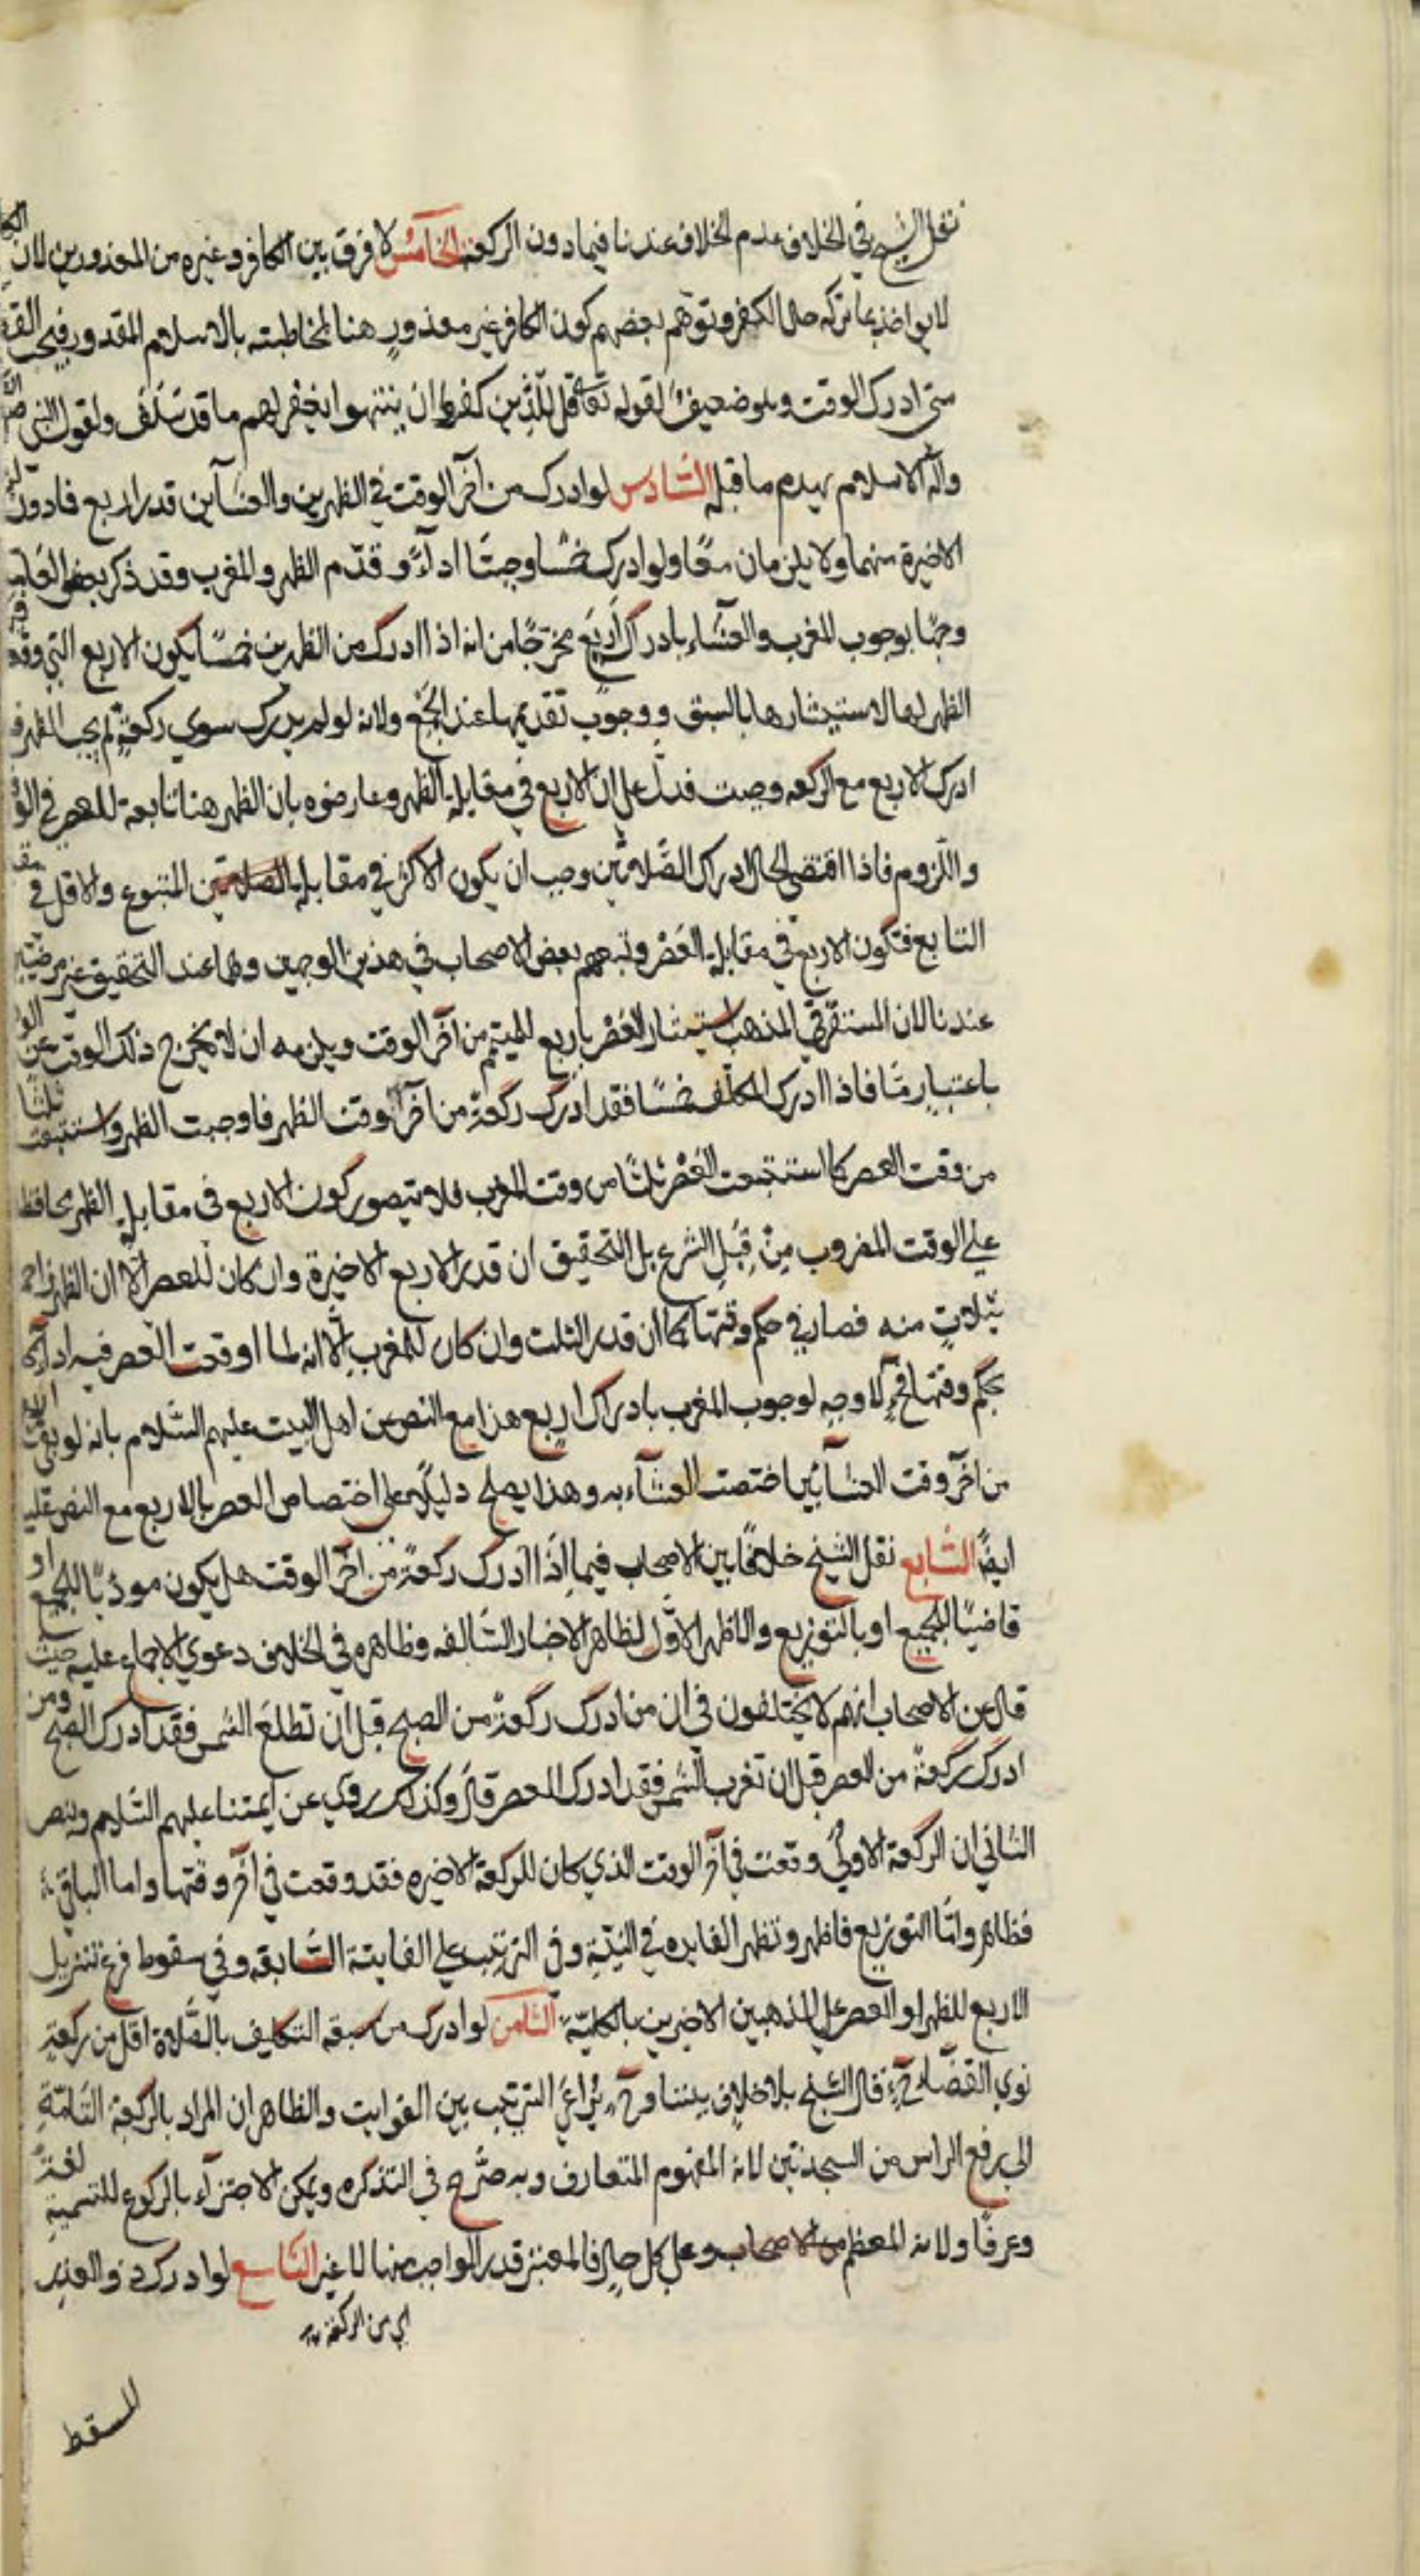 نقل الشيخ في الخلاف عدم الخلاف عندنا فيما دون الركعة الخامس لا فرق بين الكافر وغيره من المعذورين لان
لا يواخذ بما تركه حال الكفر وتوهم بعضهم كون الكافر غير معذور هنا لمخاطبته بالاسلام المقدور فيجب
متى ادرك الوقت وهو ضعيف لقوله تعالى قل للذين كفروا ان ينتهوا يغفر لهم ما قد سلف ولقول النبي
وآله الاسلام يهدم ما قبله السادس لو ادرك من اخر الوقت في الظهرين والعشآين قدر اربع فادون
الاخيرة منهما ولا يلزمان معًا ولو ادرك خمسا وجبتا ادآءً وقدّم الظهر والمغرب وقد ذكر بعض
وجهًا بوجوب المغرب والعشاء بادراك اربع مخرجًا من انه اذا ادرك من الظهرين خمسًا يكون الاربع التي
الظهر لها لاستيثارها بالسبق ووجوب تقديمها عند الجمع ولانه لو لم يدرك سوى ركعة لم يجب الظهر
ادرك الاربع مع الركعه وجبت فدل على ان الاربع في مقابلة الظهر وعارضوه بان الظهر هنا تابعة للعصر في
واللزوم فاذا اقتضى الحال ادراك الصلاتين وجب ان يكون الاكثر في مقابلة المتبوع والاقل في
التابع فتكون الاربع في مقابلة العصر وتبعهم بعض الاصحاب في هذين الوجهين وهما عند التحقيق غير مرضيّين
عندنا لان المستقر في المذهب استيثار العصر باربع من آخر الوقت ويلزمه ان لا يخرج ذلك الوقت عن
باعتبار مّا فاذا ادرك المكلف خمسًا فقد ادرك ركعة من اخر وقت الظهر فاوجبت الظهر واستتبعت ثلثا
من وقت العصر كما استتبعت العصر ثلثًا من وقت المغرب فلا يتصور كون الاربع في مقابلة الظهر محافظة
على الوقت المضروب مِنْ قِبَل الشرع بل التحقيق ان قدر الاربع الاخيرة وان كان للعصر الا ان الظهر
بثلاثٍ منه فصار في حكم وقتها كما ان قدر الثلث وان كان للمغرب الا انه لما اوقعت العصر فيه
بحكم وقتها فح لا وجه لوجوب المغرب بادراك اربع هذا مع النص عن اهل البيت عليهم السّلام بانه لو بقى
من اخر وقت العشآئين اختصت العشآء به وهذا يصلح دليلًا على اختصاص العصر بالاربع مع النص عليه
ايضًا السّابع نقل الشيخ خلافًا بين الاصحاب فيما اذا ادرك ركعةً من اخر الوقت هل يكون مؤديًا للجميع او
قاضيًا للجميع او بالتوزيع والاظهر الاوّل لظاهر الاخبار السّالفه وظاهره في الخلاف دعوى الاجماع عليه حيث
قال عن الاصحاب انهم لا يختلفون في ان من ادرك ركعةً من الصبح قبل ان تطلعَ الشمس فقد ادرك الصبح ومن
ادرك ركعةً من العصر قبل ان تغرب الشمس فقد ادرك العصر قال وكذلك روي عن ايمتنا عليهم السّلام
الثاني ان الركعة الاولى وقعت في آخر الوقت الذي كان للركعة الاخيره فقد وقعت في آخر وقتها واما الباقي
فظاهر وامّا التوزيع فاظهر وتظهر الفايده في النيّة وفي الترتيب على الفايتة السّابقه وفي سقوط فرع تنزيل
الاربع للظهر او العصر على المذهبين الاخيرين بالكليّة الثامن لو ادرك من سبقه التكليف بالصّلاة اقل من ركعةٍ
نوى القضآء ح قال الشيخ بلا خلاف بيننا وح يُراعى الترتيب بين الفوايت والظاهر ان المراد بالركعة التامّة
الى رفع الراس من السجدتين لانه المفهوم المتعارف وبه صرّح في التذكره ويمكن الاجتزآء بالركوع للتسمية لغةً
وعرفًا ولانه المعظم وعلى كل حالٍ فالمعتبر قدر الواجب منها لا غير التاسع لو ادرك ذو العذر
اي من الركعة
المسقط